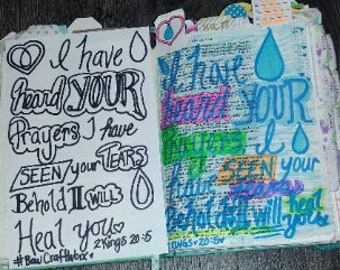 I have
heard YOUR
Prayers I have
SEEN your TEARS
Behold I WILL
Heal you
2 Kings 20:5
I have
heard YOUR
Prayers I
have SEEN your
tears
Behold I will heal
you
Kings 20:5